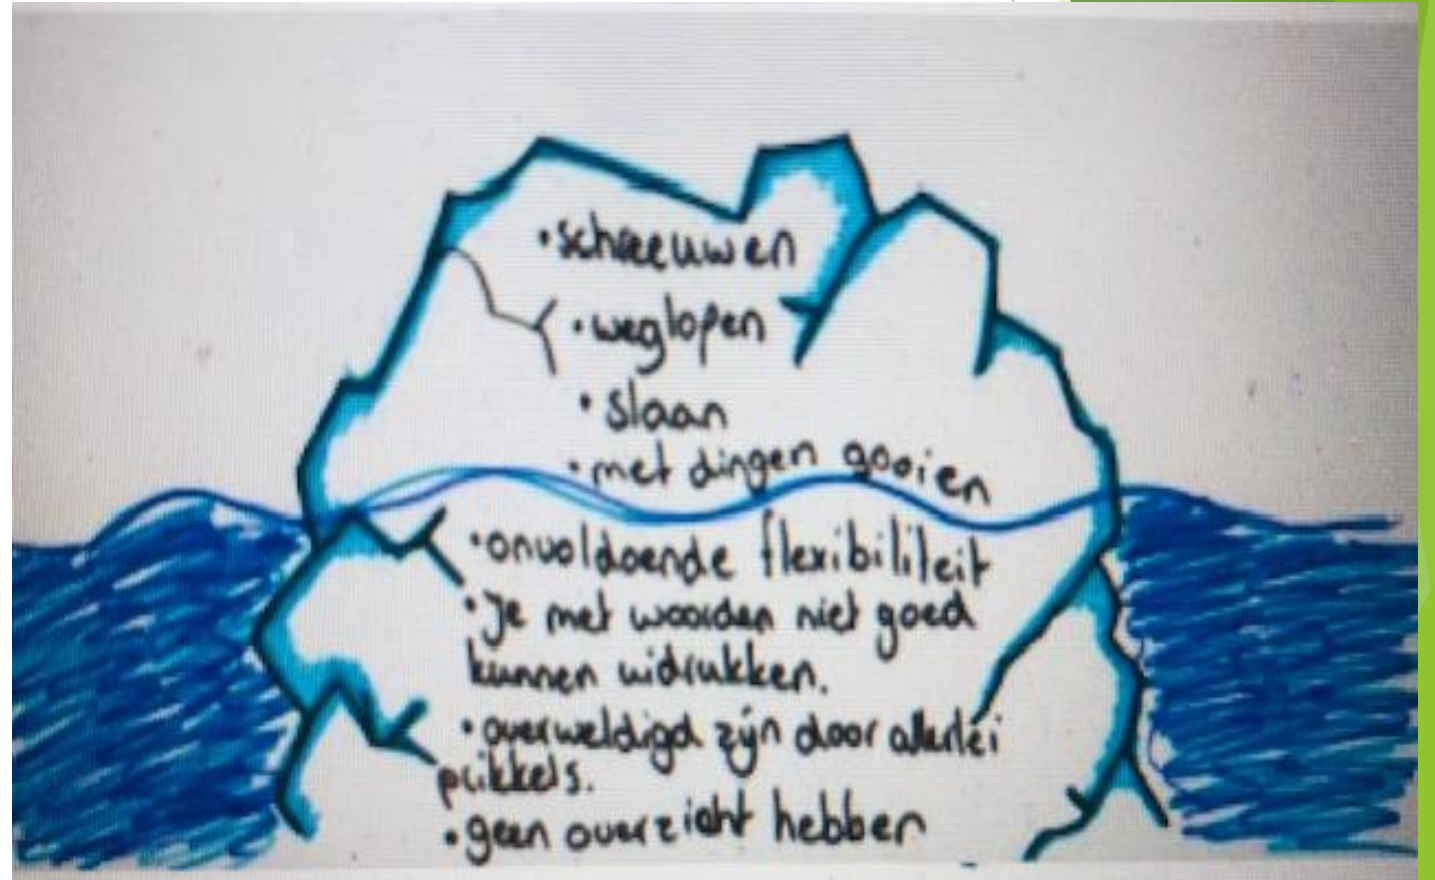 • schreeuwen
• weglopen
• slaan
• met dingen gooien
• onvoldoende flexibiliteit
• Je met woorden niet goed
kunnen uidrukken.
• overweldigd zijn door allerlei
prikkels.
• geen overzicht hebben